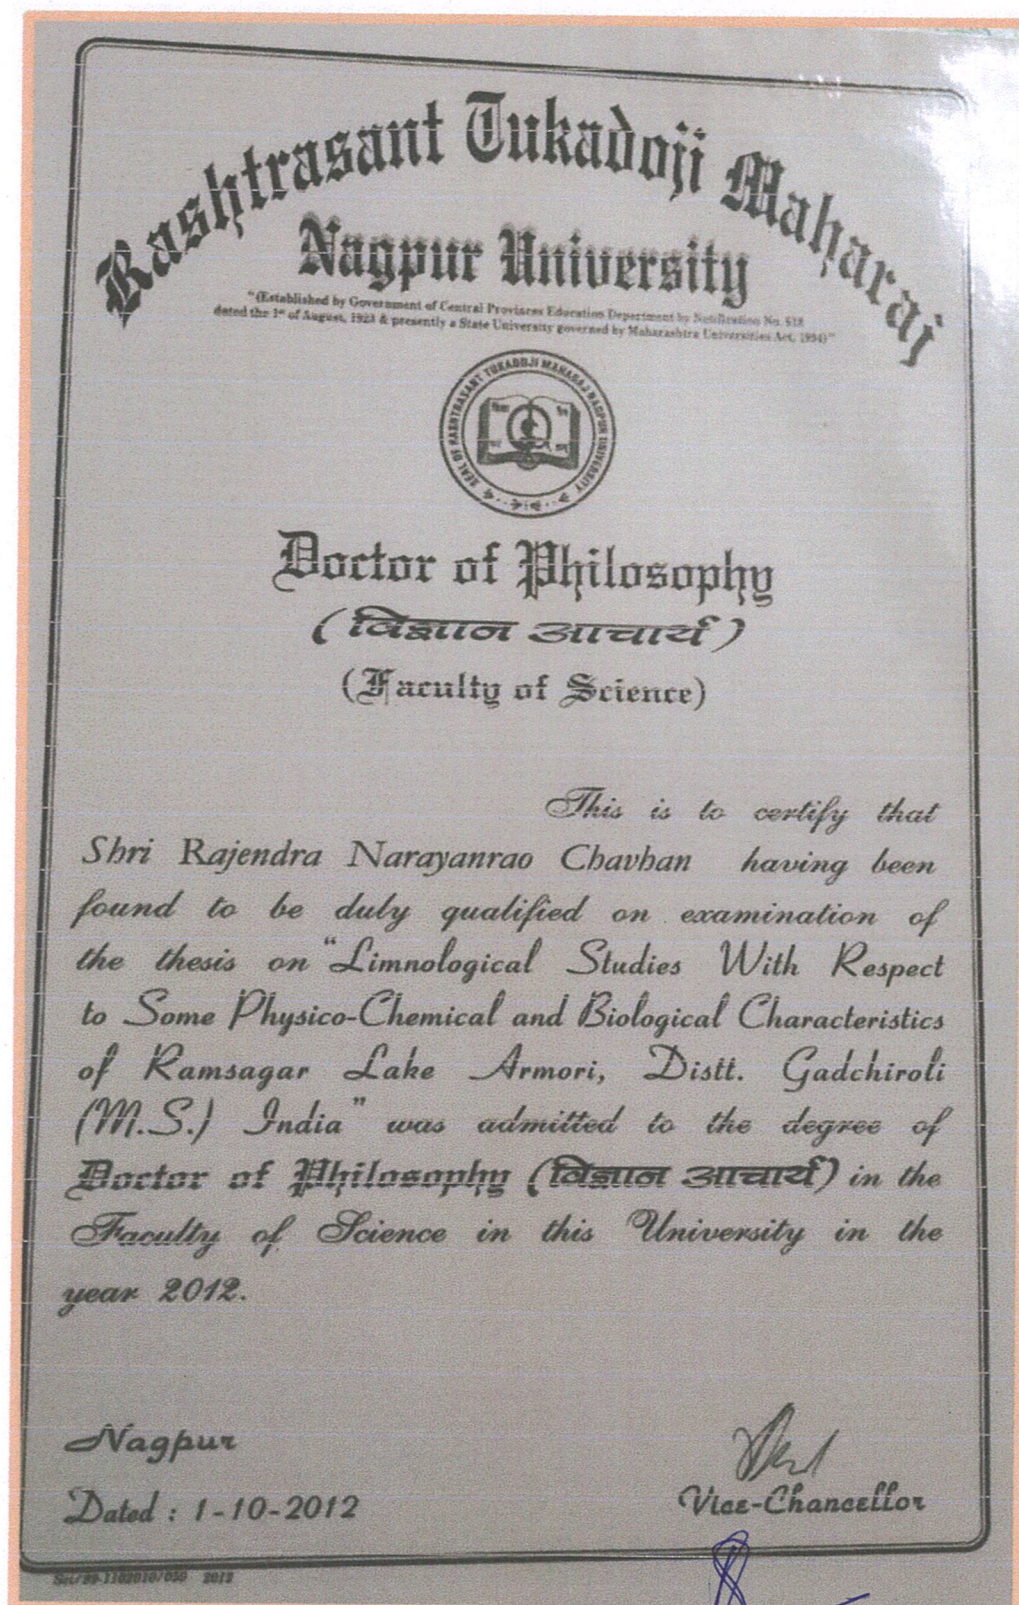 Rashtrasant Tukadoji Maharaj
Nagpur University
"(Established by Government of Central Provinces Education Department by Notification No. 513
dated the 1st of August, 1923 & presently a State University governed by Maharashtra Universities Act, 1994)"
SEAL OF RASHTRASANT TUKADOJI MAHARAJ NAGPUR UNIVERSITY
Doctor of Philosophy
(विज्ञान आचार्य)
(Faculty of Science)
This is to certify that
Shri Rajendra Narayanrao Chavhan having been
found to be duly qualified on examination of
the thesis on "Limnological Studies With Respect
to Some Physico-Chemical and Biological Characteristics
of Ramsagar Lake Armori, Distt. Gadchiroli
(M.S.) India" was admitted to the degree of
Doctor of Philosophy (विज्ञान आचार्य) in the
Faculty of Science in this University in the
year 2012.
Nagpur
Dated : 1-10-2012
Vice-Chancellor
2012